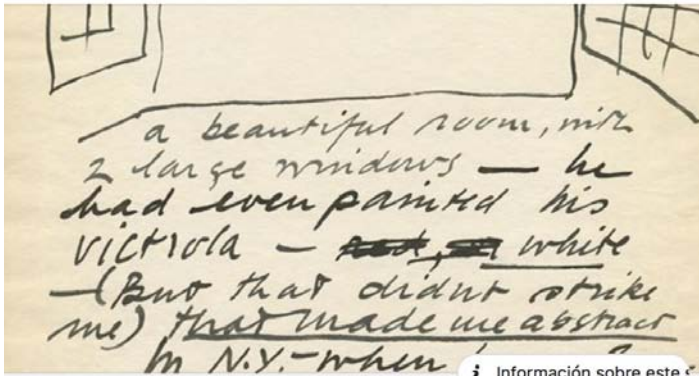 a beautiful room, with
2 large windows — he
had even painted his
victrola — red, white
—(But that didnt strike
me) that made me abstract
in N.Y. – when
i Información sobre este